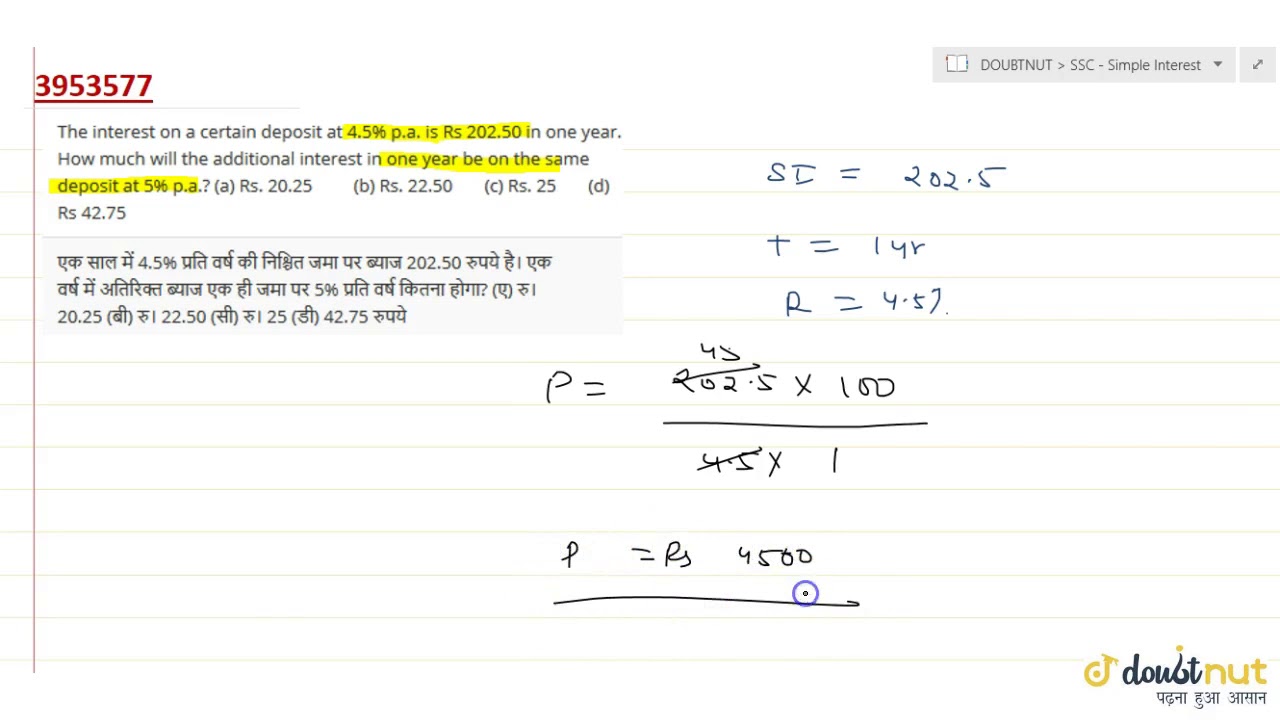 3953577
DOUBTNUT > SSC - Simple Interest
The interest on a certain deposit at 4.5% p.a. is Rs 202.50 in one year.
How much will the additional interest in one year be on the same
deposit at 5% p.a.? (a) Rs. 20.25 (b) Rs. 22.50 (c) Rs. 25 (d)
Rs 42.75
एक साल में 4.5% प्रति वर्ष की निश्चित जमा पर ब्याज 202.50 रुपये है। एक
वर्ष में अतिरिक्त ब्याज एक ही जमा पर 5% प्रति वर्ष कितना होगा? (ए) रु।
20.25 (बी) रु। 22.50 (सी) रु। 25 (डी) 42.75 रुपये
SI = 202.5
T = 1 yr
R = 4.5%
45
P = 202.5 X 100
4.5 X 1
P = Rs 4500
doubtnut
पढ़ना हुआ आसान